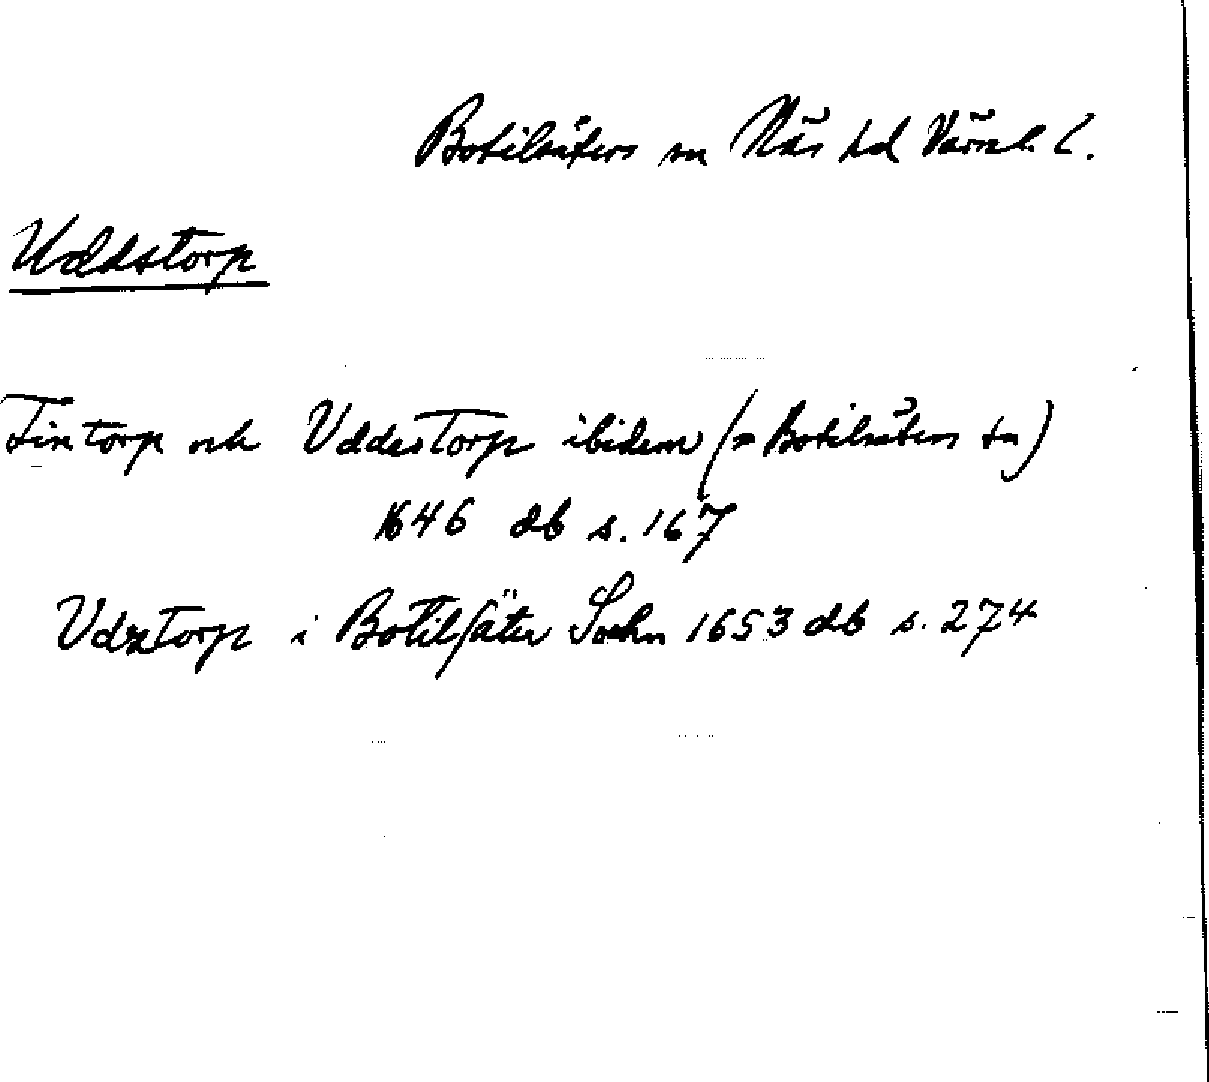 Botilsäters sn Näs hd Värml. l.
Uddstorp
Tintorp och Uddestorp ibidem (= Botilsäters sn)
1646 db s. 167
Vdztorp i Botilsäter Sochn 1653 db s. 274